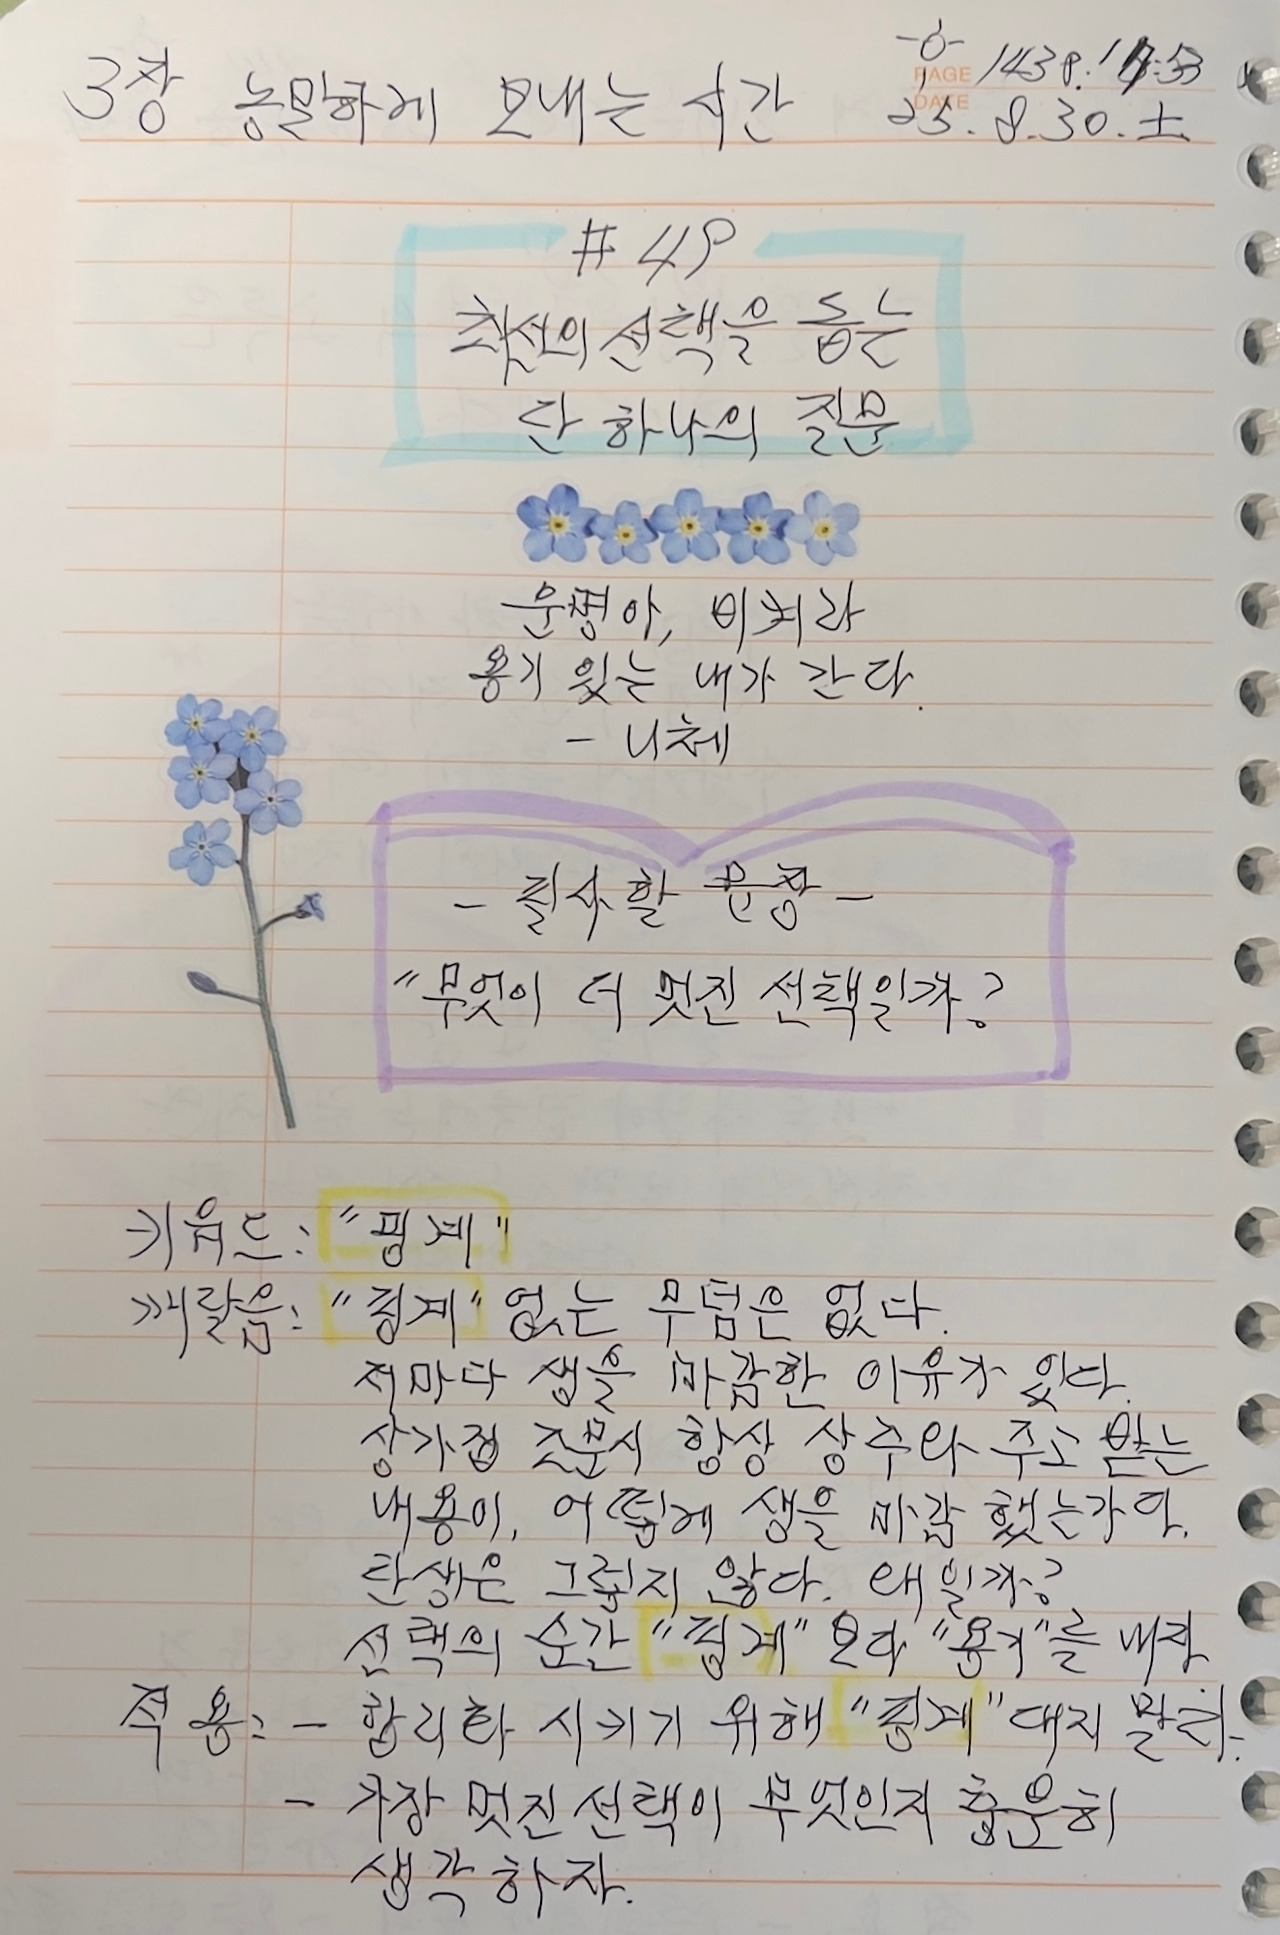 3장 농밀하게 보내는 시간
PAGE 143P.
DATE 25. 8. 30. 土
#49
최선의 선택을 돕는
단 하나의 질문
운명아, 비켜라
용기 있는 내가 간다.
- 니체
- 필사할 문장 -
"무엇이 더 멋진 선택일까?
키워드: "핑계"
깨달음: "핑계" 없는 무덤은 없다.
저마다 생을 마감한 이유가 있다.
상가집 조문시 항상 상주와 주고 받는
내용이, 어떻게 생을 마감 했는가다.
탄생은 그렇지 않다. 왜일까?
선택의 순간 "핑계" 보다 "용기"를 내자
적용: - 합리화 시키기 위해 "핑계" 대지 말자.
- 가장 멋진 선택이 무엇인지 충분히
생각하자.